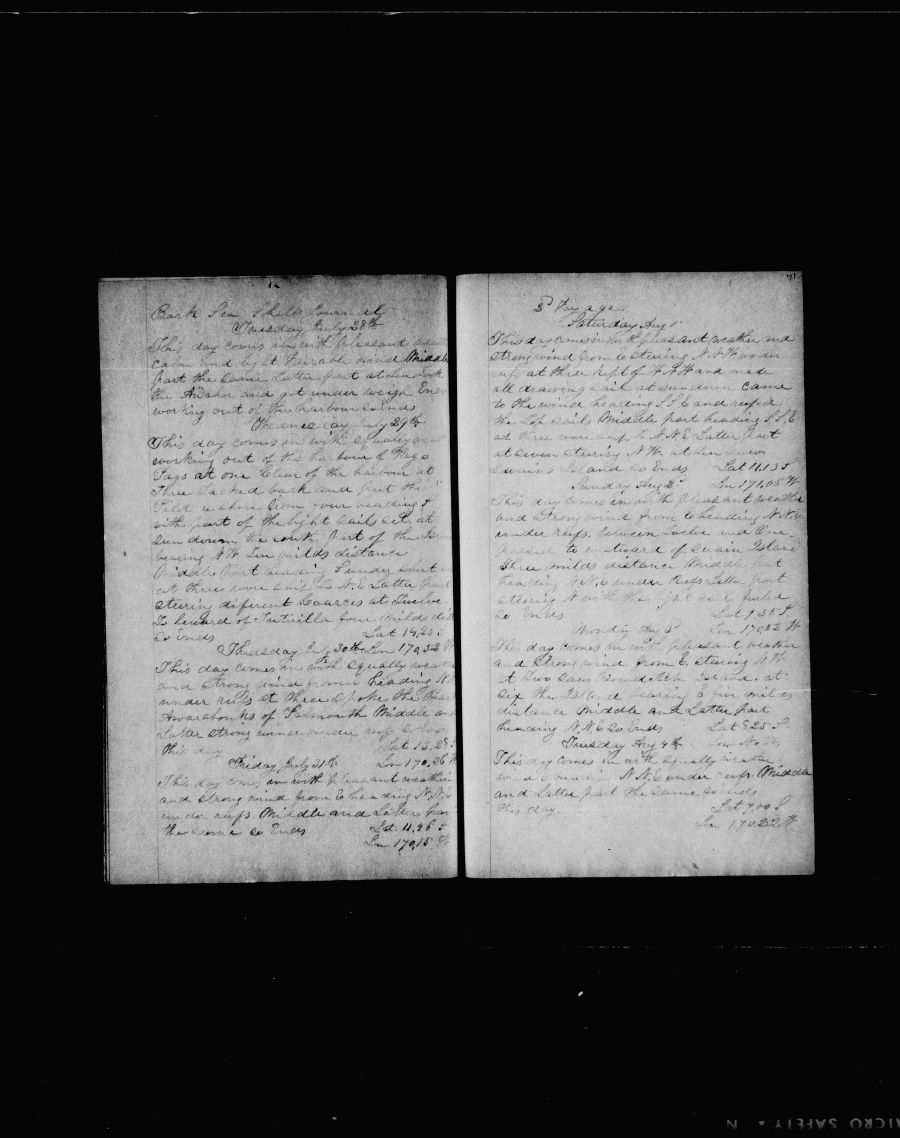 Bark Sea Shell Journal
Tuesday July 28th
This day comes in with pleasant
calm and light wind Middle
part the same Latter part at took
the Anchor and got under weigh
working out of the harbour So ends
Wednesday July 29th
This day comes in with squally
working out of the harbour of Pago
Pago at one Clear of the harbour at
Three tacked back and put the
Pilot a shore from four heading S
with part of the light sails set at
sun down the south part of the
bearing N W ten milds distance
Middle Part heading S under short
at three wore ship to N. E Latter part
steering diferent Cources at Twelve
To leward of Tutuilla four milds
So Ends Lat 14,20.
Thursday July 30th Lon 170,52 W
This day comes in with squally
and strong wind from heading N
under reefs at three Spoke the
Awarshonks of Falmouth Middle and
Latter strong wind under reefs So Ends
This day Lat 13,28 S
Friday July 31th Lon 170,36 W
This day comes in with pleasant weather
and strong wind from E heading N.N.
under reefs. Middle and Latter Par
the same So Ends Lat 11,46 S
Lon 170,15 W
71
3d Voyage
Saturday Aug 1
This day comes in with pleasant weather and
strong wind from E steering N.N.W under
reefs at three Kept of W.N.W and made
all drawing sail at sundown came
to the wind heading S.S.E and reefed
the Top sails Middle part heading S.S.E
at three wore ship to N.N.E Latter part
at Seven stering N.W. at Ten saw
Swains Island So Ends Lat 11.13 S
Sunday Aug 2d Lon 171.06 W
This day comes in with Pleasant weather
and Strong wind from E heading N.N.E
under reefs. between Twelve and One
passed to westward of Swain Island
Three milds distance Middle Part
heading N.N.E under Reefs Latter part
steering N with the light sail furled
So Ends Lat 9.35 S
Monday Aug 3d Lon 170,52 W
This day comes in with pleasant weather
and Strong wind from E. stering N W
at Two saw Bowditch Island. at
six the Island bearing E five milds
distance Middle and Latter part
heading N.N.E So Ends Lat 8.25 S
Tuesday Aug 4th Lon No Obs
This day comes in with squally weather
wind E heading N.N.E under reefs. Middle
and Latter part the same So ends
this day. Lat 7,00 S
Lon 170.22 W
MICRO SAFETY